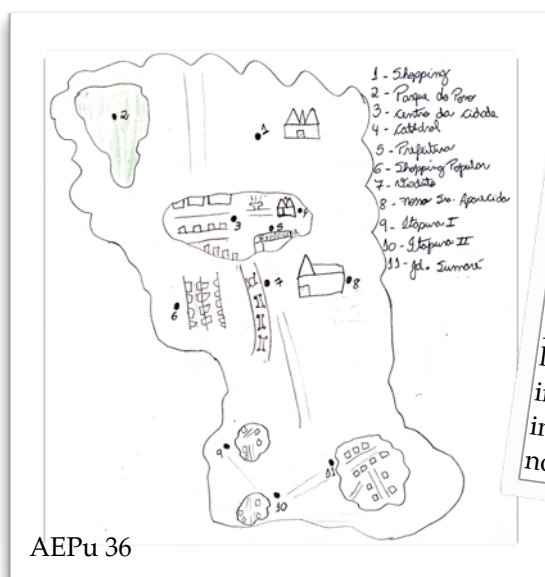 1 - Shopping
2 - Parque do Povo
3 - Centro da Cidade
4 - Catedral
5 - Prefeitura
6 - Shopping Popular
7 - Viaduto
8 - Nossa Sra. Aparecida
9 - Itapura I
10 - Itapura II
11 - Jd. Sumaré
2
1
3
4
5
6
7
8
9
10
11
AEPu 36